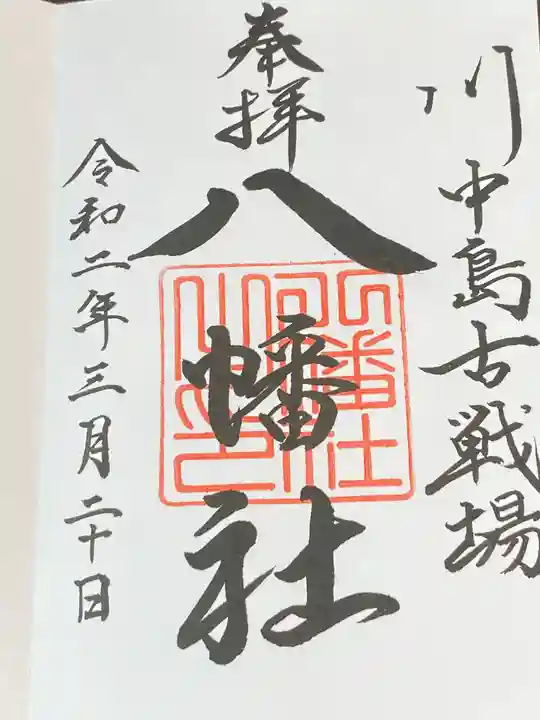 川中島古戦場
奉拝
八幡社
令和二年三月二十日